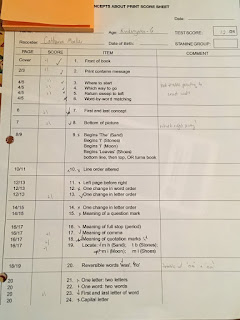 NCEPTS ABOUT PRINT SCORE SHEET
Date:
Age: Kindergarten - 6
TEST SCORE: /24
Recorder:
Date of Birth:
STANINE GROUP:
PAGE SCORE ITEM COMMENT
Cover 1. Front of book
2/3 2. Print contains message
4/5 3. Where to start
4/5 4. Which way to go
4/5 5. Return sweep to left
4/5 6. Word by word matching
6 7. First and last concept
7 8. Bottom of picture
8/9 9. Begins 'The' (Sand)
Begins 'I' (Stones)
Begins 'I' (Moon)
Begins 'Leaves' (Shoes)
bottom line, then top, OR turns book
10/11 10. Line order altered
12/13 11. Left page before right
12/13 12. One change in word order
12/13 13. One change in letter order
14/15 14. One change in letter order
14/15 15. Meaning of a question mark
16/17 16. Meaning of full stop (period)
16/17 17. Meaning of comma
16/17 18. Meaning of quotation marks
16/17 19. Locate: m h (Sand); t b (Stones)
m i (Moon); m i (Shoes)
18/19 20. Reversible words 'was', 'no'
20 21. One letter: two letters
20 22. One word: two words
20 23. First and last letter of word
20 24. Capital letter